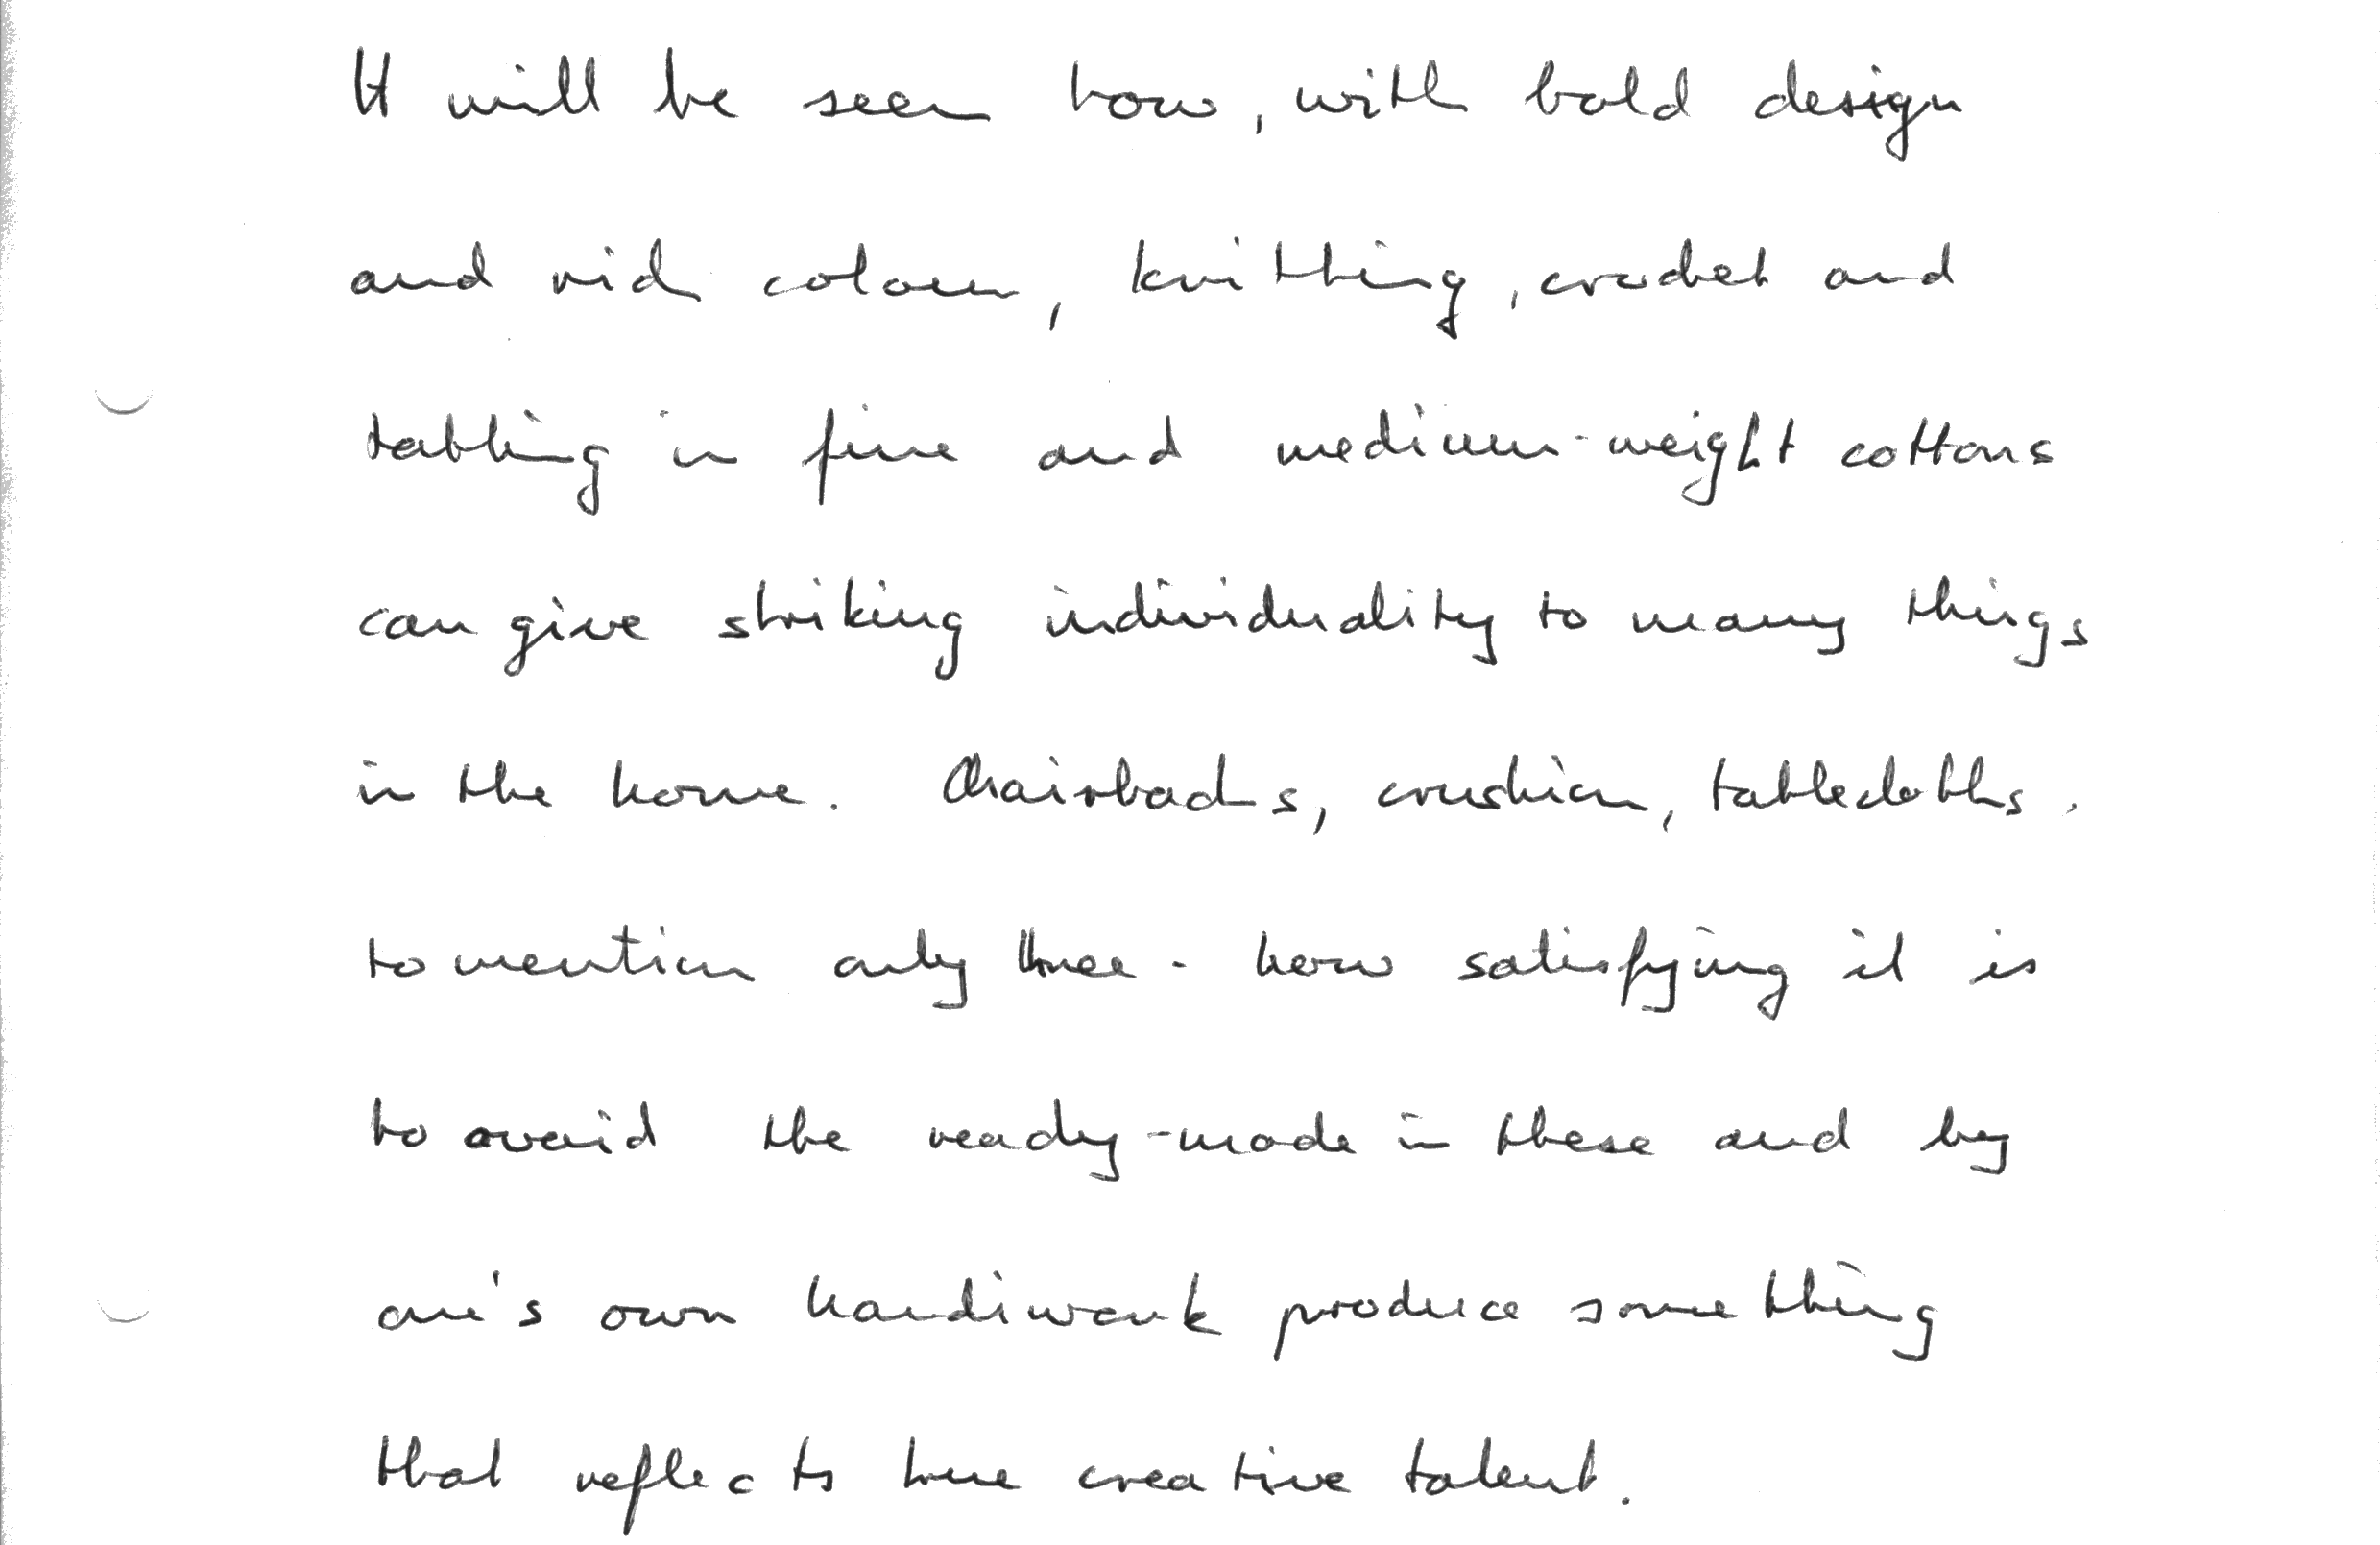 It will be seen how, with bold design
and rich colour, knitting, crochet and
tatting in fine and medium-weight cottons
can give striking individuality to many things
in the home. Chairbacks, crushion, tablecloths.
to mention only three - how satisfying it is
to avoid the ready-made in these and by
one's own handiwork produce something
that reflects true creative talent.